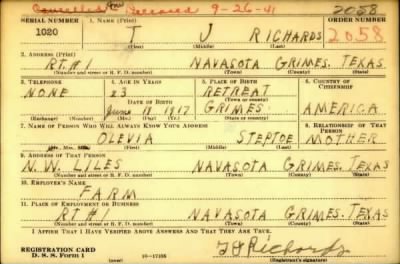 Cancelled Deceased 9-26-41 2058
SERIAL NUMBER 1. NAME (Print) ORDER NUMBER
1020 I J RICHARDS 2058
(First) (Middle) (Last)
2. ADDRESS (Print)
RT.#1 NAVASOTA GRIMES. TEXAS
(Number and street or R. F. D. number) (Town) (County) (State)
3. TELEPHONE 4. AGE IN YEARS 5. PLACE OF BIRTH 6. COUNTRY OF CITIZENSHIP
NONE 23 RETREAT
DATE OF BIRTH (Town or county)
June 19 1917 GRIMES. AMERICA
(Exchange) (Number) (Mo.) (Day) (Yr.) (State or country)
7. NAME OF PERSON WHO WILL ALWAYS KNOW YOUR ADDRESS 8. RELATIONSHIP OF THAT PERSON
OLEVIA STEPTOE MOTHER
(Mr., Mrs., Miss) (First) (Middle) (Last)
9. ADDRESS OF THAT PERSON
N. W. LILES NAVASOTA GRIMES. TEXAS
(Number and street or R. F. D. number) (Town) (County) (State)
10. EMPLOYER'S NAME
FARM
11. PLACE OF EMPLOYMENT OR BUSINESS
RT #1 NAVASOTA GRIMES. TEXAS
(Number and street or R. F. D. number) (Town) (County) (State)
I AFFIRM THAT I HAVE VERIFIED ABOVE ANSWERS AND THAT THEY ARE TRUE.
REGISTRATION CARD Richards
D. S. S. FORM 1 16-17105 (Registrant's signature)